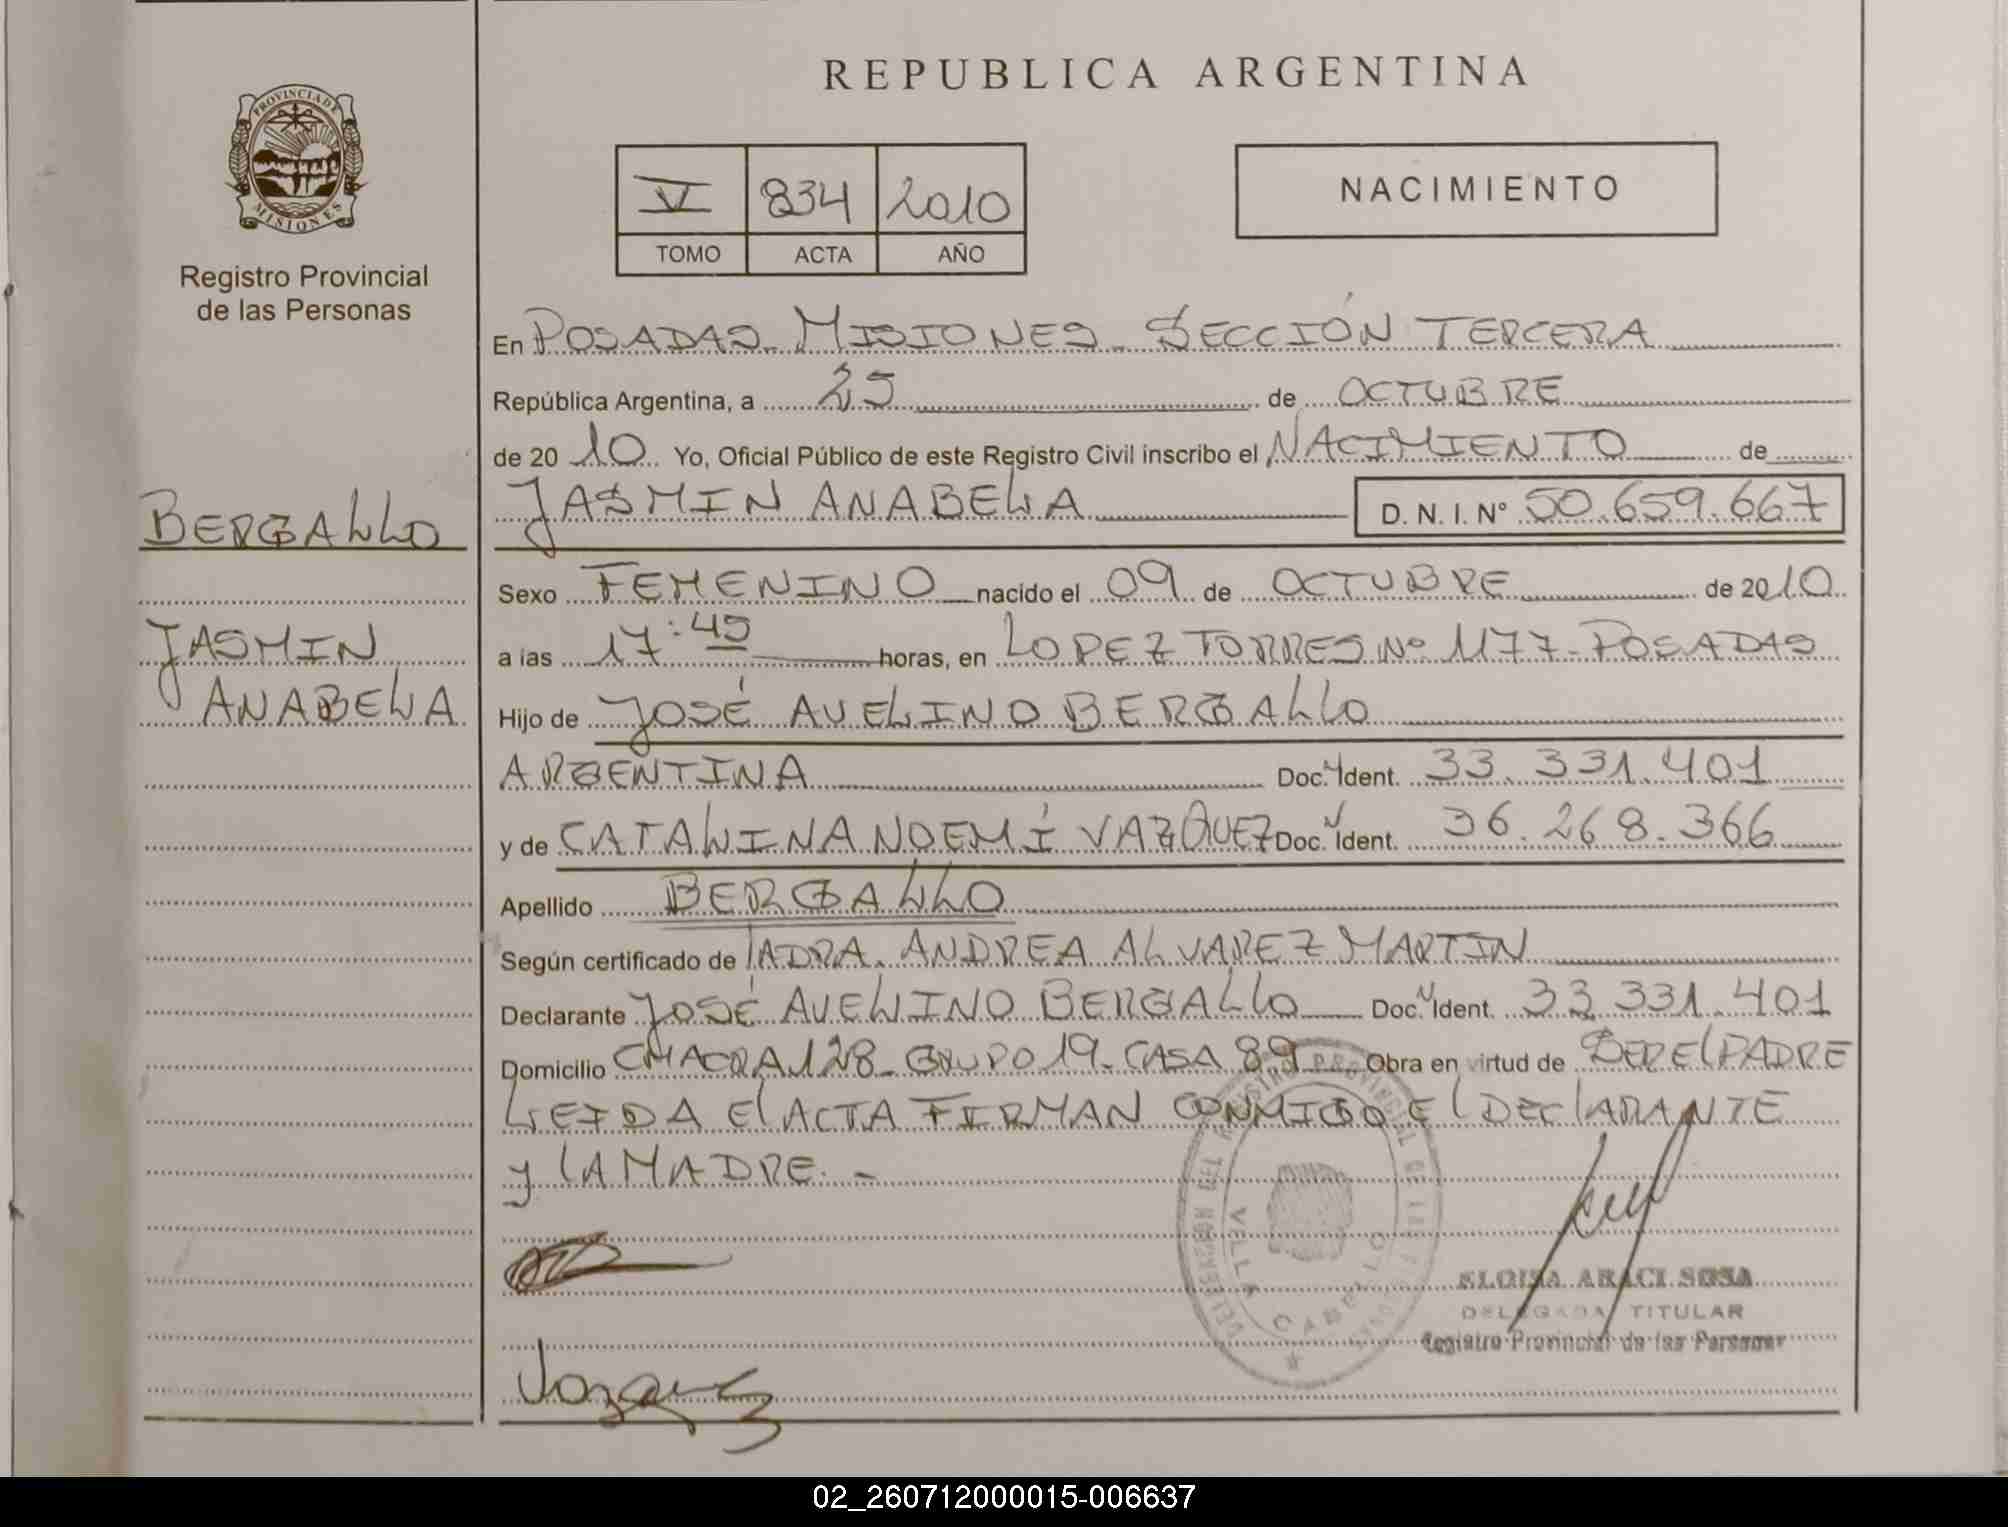 REPUBLICA ARGENTINA
PROVINCIA DE
MISIONES
Registro Provincial
de las Personas
V 834 2010
TOMO ACTA AÑO
NACIMIENTO
En POSADAS - MISIONES - SECCIÓN TERCERA
República Argentina, a 25 de OCTUBRE
de 20 10 Yo, Oficial Público de este Registro Civil inscribo el NACIMIENTO de
JASMIN ANABELA D. N. I. N° 50.659.667
BERGALLO
JASMIN
ANABELA
Sexo FEMENINO nacido el 09 de OCTUBRE de 2010
a las 17:45 horas, en LOPEZ TORRES Nº 1177 - POSADAS
Hijo de JOSÉ AVELINO BERGALLO
ARGENTINA Doc. Ident. 33.331.401
y de CATALINA NOEMÍ VAZQUEZ Doc. Ident. 36.268.366
Apellido BERGALLO
Según certificado de LA DRA. ANDREA ALVAREZ MARTIN
Declarante JOSÉ AVELINO BERGALLO Doc. Ident. 33.331.401
Domicilio CHACRA 128 - GRUPO 19 - CASA 89 Obra en virtud de SER El PADRE
LEIDA El ACTA FIRMAN CONMIGO El DEClARANTE
y lA MADRE. -
VILLA CABELLO
ELOISA ARACI SOSA
DELEGADA TITULAR
Registro Provincial de las Personas
Vazquez
02_260712000015-006637